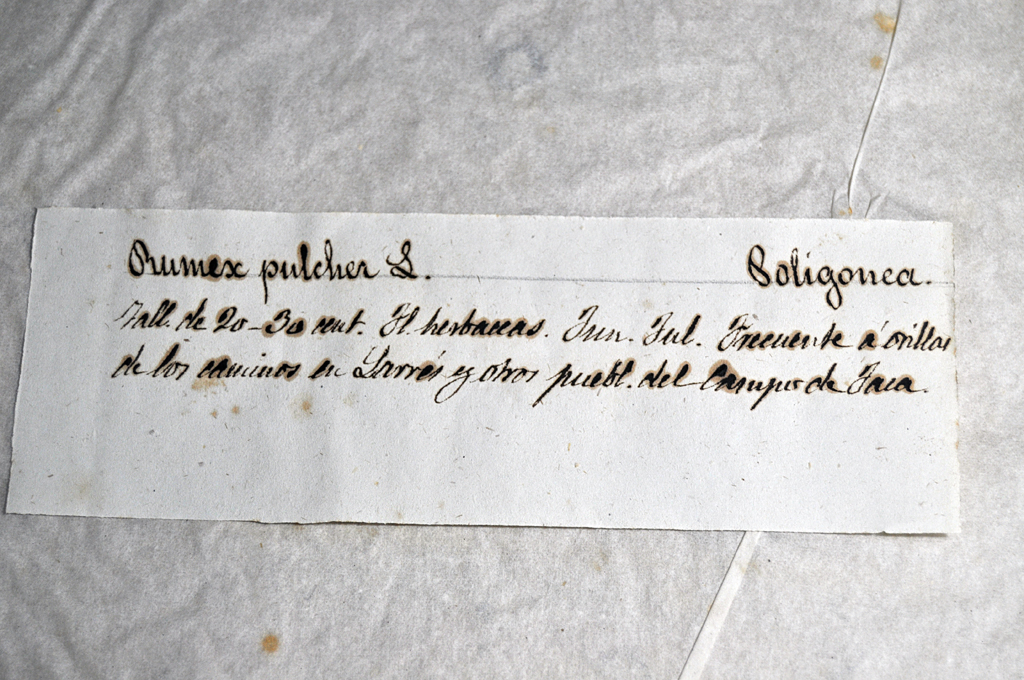 Rumex pulcher L. Poligonea.
Tall. de 20-30 cent. Fl. herbaceas. Jun. Jul. Frecuente á orillas
de los caminos en Larrés y otros puebl. del Campo de Jaca.